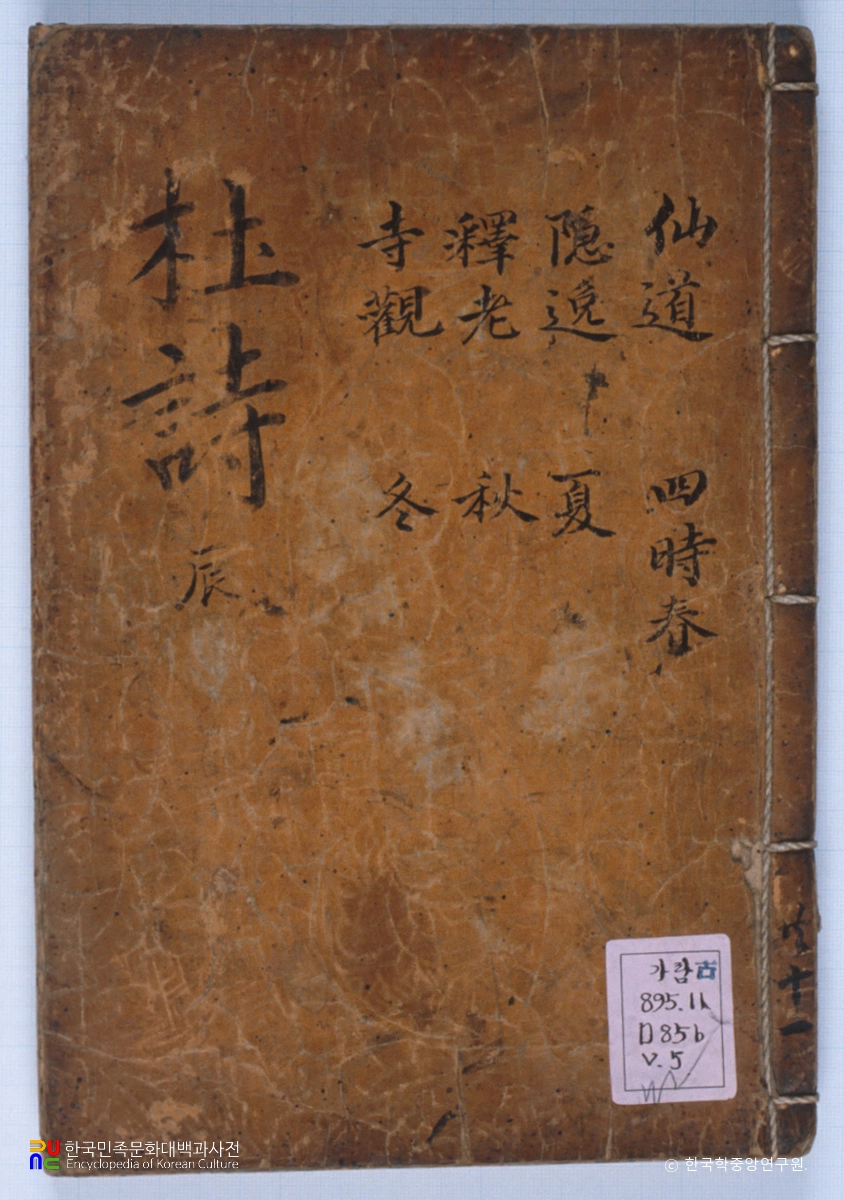 仙道 四時春
隱逸 夏
釋老 秋
寺觀 冬
杜詩 辰
共十一
가람古
895.11
D85b
v.5
한국민족문화대백과사전
Encyclopedia of Korean Culture
© 한국학중앙연구원.